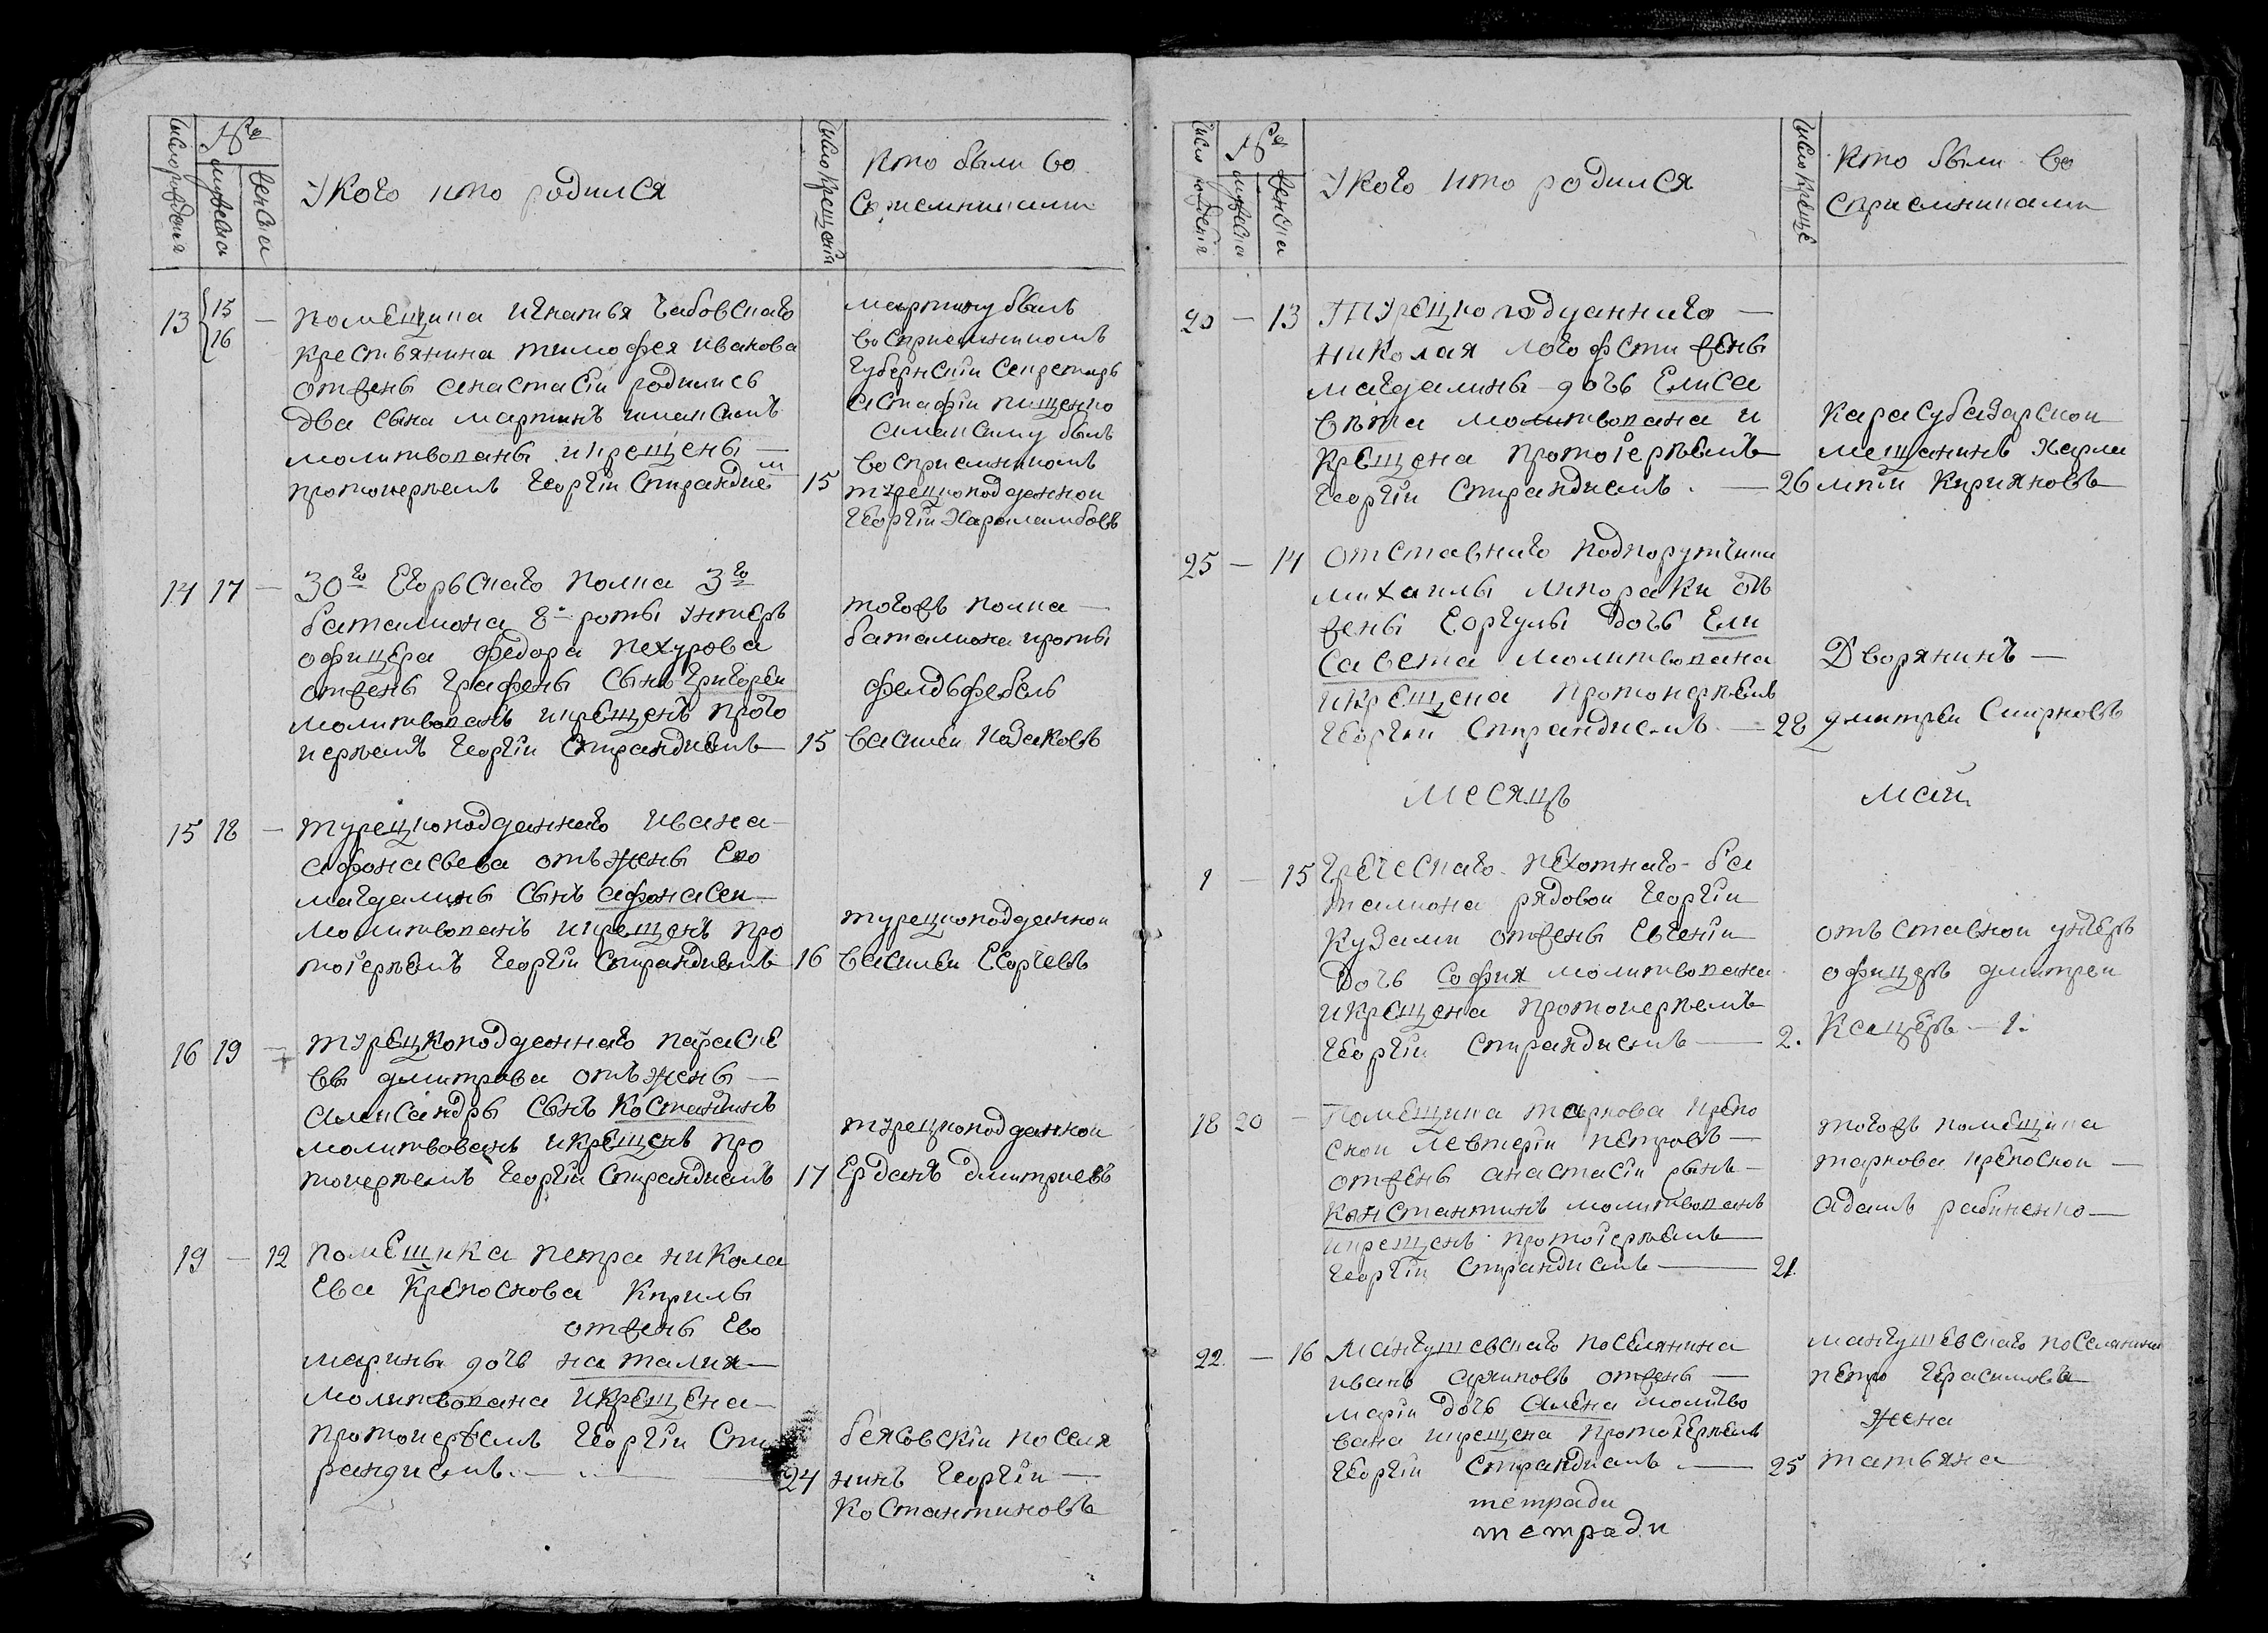 число рождения
№ра
мужеска
женска
У кого кто родился
число крещенія
Кто были во
сприемниками
13 15 16 — помещика игнатья чабовскаго
крестьянина тимофея иванова
отжены анастасіи родились
два сына мартинъ имаксимъ
молитвованы икрещены —
протоиереемъ георгіи Спирандие м 15
мартину былъ
восприемникомъ
губернскіи секретарь
астафіи пищенко
амаксиму былъ
восприемникомъ
турецкоподданнои
георгіи Харламбовъ
14 17 — 30го Егорьскаго полка 3го
баталиона 8 роты унтеръ
офицера федора пехурова
отжены графены сынъ григореи
молитвованъ икрещенъ прото
иереемъ георгіи Спирандиемъ 15
тогожъ полка —
баталиона ироты
фелдьфебель
василеи Казаковъ
15 18 — турецкоподданнаго ивана
афонасьева отъ жены Ево
магдалины сынъ афонасеи
молитвованъ икрещенъ про
тоіереемъ георгіи Спирандиемъ 16
турецкоподданнои
василеи Егоргевъ
16 19 — турецкоподданнаго параске
вы дмитрова отъ жены —
александры сынъ Костантинъ
молитвованъ икрещенъ про
тоиереемъ георгіи Спирандиемъ 17
турецкоподданнои
Ерданъ дмитриевъ
19 — 12 помещика петра никола
Ева Крепоснова Кирилы
отжены Ево
марины дочь наталия
молитвована икрещена
протоиереемъ георгіи Спи
рандиемъ. 24
беясовскіи поселя
нинъ георгіи —
Костантиновъ
число рождения
№ра
мужеска
женска
У кого кто родился
число креще
Кто были во
сприемниками
20 — 13 турецкоподданнаго —
николая логофети жены
магдалины дочь Елиса
вѣта молитвована и
крещена протоіереемъ
георгіи Спирандиемъ. — 26
карасубазарскои
мещанинъ Харла
мпіи Кирияновъ
25 — 14 отставнаго подпоручика
михаилы липораки отъ
жены Еоргулы дочь Ели
савета молитвована
икрещена протоиереемъ
георгіи Спирандиемъ. — 28
Дворянинъ —
дмитреи Смирновъ
месяцъ маи
1 — 15 греческаго пехотнаго ба
талиона рядовои георгіи
кузами отжены Евгеніи
дочь София молитвована
икрещена протоиереемъ
георгіи Спирандиемъ — 2.
отъ ставнои унтеръ
офицеръ дмитреи
Кацеръ — 1.
18 20 — помещика таркова крепо
снои левтеріи петровъ —
отжены анастасіи сынъ —
Константинъ молитвованъ
икрещенъ протоіереемъ
георгіи Спирандиемъ — 21.
тогожъ помещика
таркова крепоснои —
адамъ рабиненко —
22. — 16 мангушевскаго поселянина
иванъ отжены —
маріи дочь алена молитво
вана икрещена протоіереемъ
георгіи Спирандиемъ — 25
мангушевскаго поселянина
петро герасимова
жена
татьяна
тетради
тетради